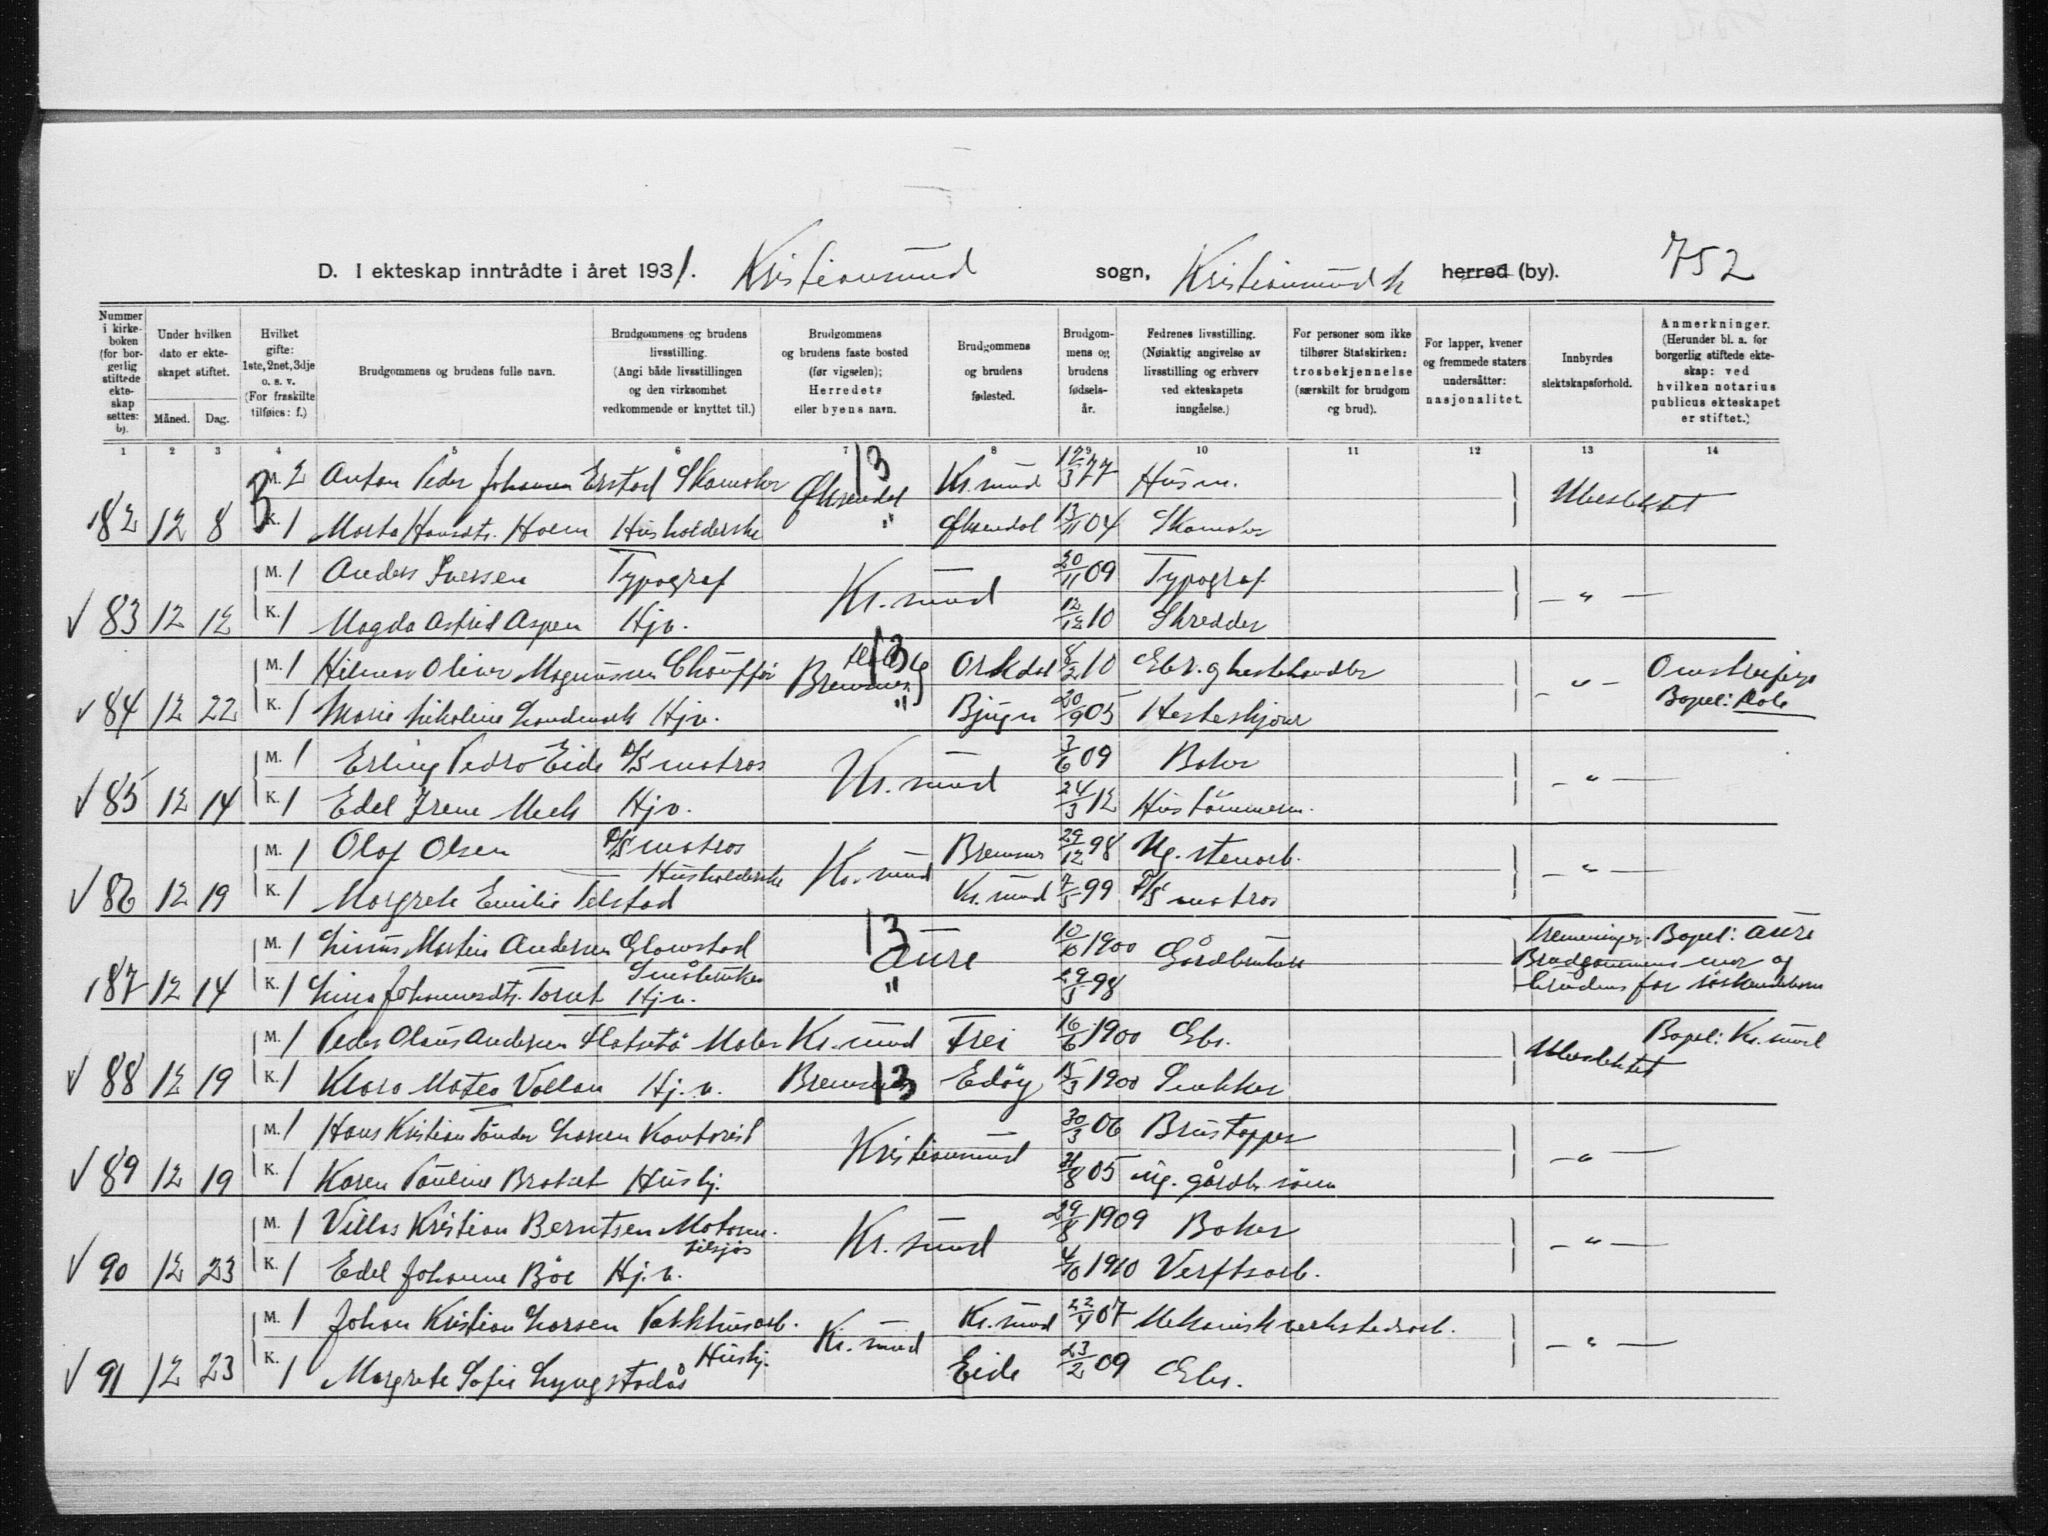 D. I ekteskap inntrådte i året 1931. Kristiansund sogn, Kristiansund N herred (by). 752
Nummer i kirke-boken (for bor-gerlig stiftede ekte-skap settes: b).
Under hvilken dato er ekte-skapet stiftet.
Måned. Dag.
Hvilket gifte: 1ste, 2net, 3dje o. s. v. (For fraskilte tilføies: f.)
Brudgommens og brudens fulle navn.
Brudgommens og brudens livsstilling. (Angi både livsstillingen og den virksomhet vedkommende er knyttet til.)
Brudgommens og brudens faste bosted (før vigselen); Herredets eller byens navn.
Brudgommens og brudens fødested.
Brudgom-mens og brudens fødsels-år.
Fedrenes livsstilling. (Nøiaktig angivelse av livsstilling og erhverv ved ekteskapets inngåelse.)
For personer som ikke tilhører Statskirken: trosbekjennelse (særskilt for brudgom og brud).
For lapper, kvener og fremmede staters undersåtter: nasjonalitet.
Innbyrdes slektskapsforhold.
Anmerkninger. (Herunder bl. a. for borgerlig stiftede ekte-skap: ved hvilken notarius publicus ekteskapet er stiftet.)
1 2 3 4 5 6 7 8 9 10 11 12 13 14
M. 2 Anton Peder Johansen Erstad Skomaker Øksendal 13 Kr.sund 12/3 77 Husm. Ubeslektet
182 12 8 3 K. 1 Marta Hansdtr. Holm Husholderske " Øksendal 13/11 04 Skomaker
M. 1 Anders Iversen Typograf Kr. sund 20/11 09 Typograf — " —
√ 83 12 12 K. 1 Magda Astrid Aspen Hjv. 12/12 10 Skredder
M. 1 Hilmar Oliver Magnussen Chauffør Bremsnes 13 Orkdal 8/2 10 Gbr. og hestehandler — " —
√ 84 12 22 K. 1 Marie Nikoline Landmark Hjv. " Bjugn 20/9 05 Hesteskjører Bopel:
M. 1 Erling Pedro Eide D/S matros Kr. sund 3/6 09 Baker — " —
√ 85 12 14 K. 1 Edel Irene Meek Hjv. 24/3 12 Hustømmerm.
M. 1 Olaf Olsen D/S matros Kr. sund Bremsnes 29/12 98 Ug. stenarb. — " —
√ 86 12 19 K. 1 Margrete Emilie Telstad Husholderske Kr. sund 7/5 99 D/S matros
M. 1 Linus Martin Andersen Glomstad Småbruker Aure 13 10/6 1900 Gårdbruker Tremenninger. Bopel: Aure
187 12 14 K. 1 Lina Johannesdtr. Torset Hjv. " 29/5 98 Brudgommens mor og brudens far søskendebarn
M. 1 Peder Olaus Andersen Flatsetø Maler Kr. sund Frei 16/6 1900 Gbr. Ubeslektet Bopel: Kr. sund
√ 88 12 19 K. 1 Klara Matea Vollan Hj. v. Bremsnes 13 Edøy 15/3 1900 Snekker
M. 1 Hans Kristian Tønder Larsen Kontorist Kristiansund 30/3 06 Brustapper — " —
√ 89 12 19 K. 1 Karen Pauline Bratset Hushj. 21/8 05 ug. gårdbr. sønn
M. 1 Villas Kristian Berntsen Motorm. tilsjøs Kr. sund 29/8 1909 Baker — " —
√ 90 12 23 K. 1 Edel Johanne Böe Hj. v. 4/10 1910 Verftsarb.
M. 1 Johan Kristian Larsen Pakkhusarb. Kr. sund Kr. sund 22/4 07 Mekanisk verkstedsarb. — " —
√ 91 12 23 K. 1 Margrete Sofie Lyngstadås Hushj. Eide 23/2 09 Gbr.